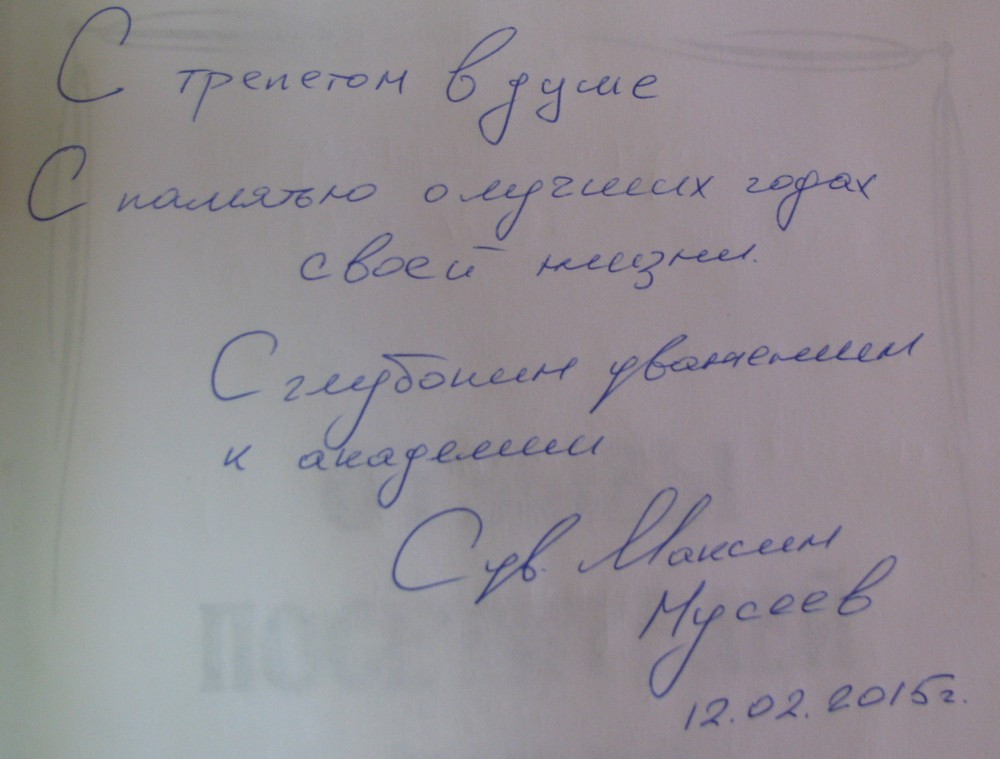 С трепетом в душе
С памятью о лучших годах
своей жизни.
С глубоким уважением
к академии
С ув. Максим
Мусеев
12.02.2015г.